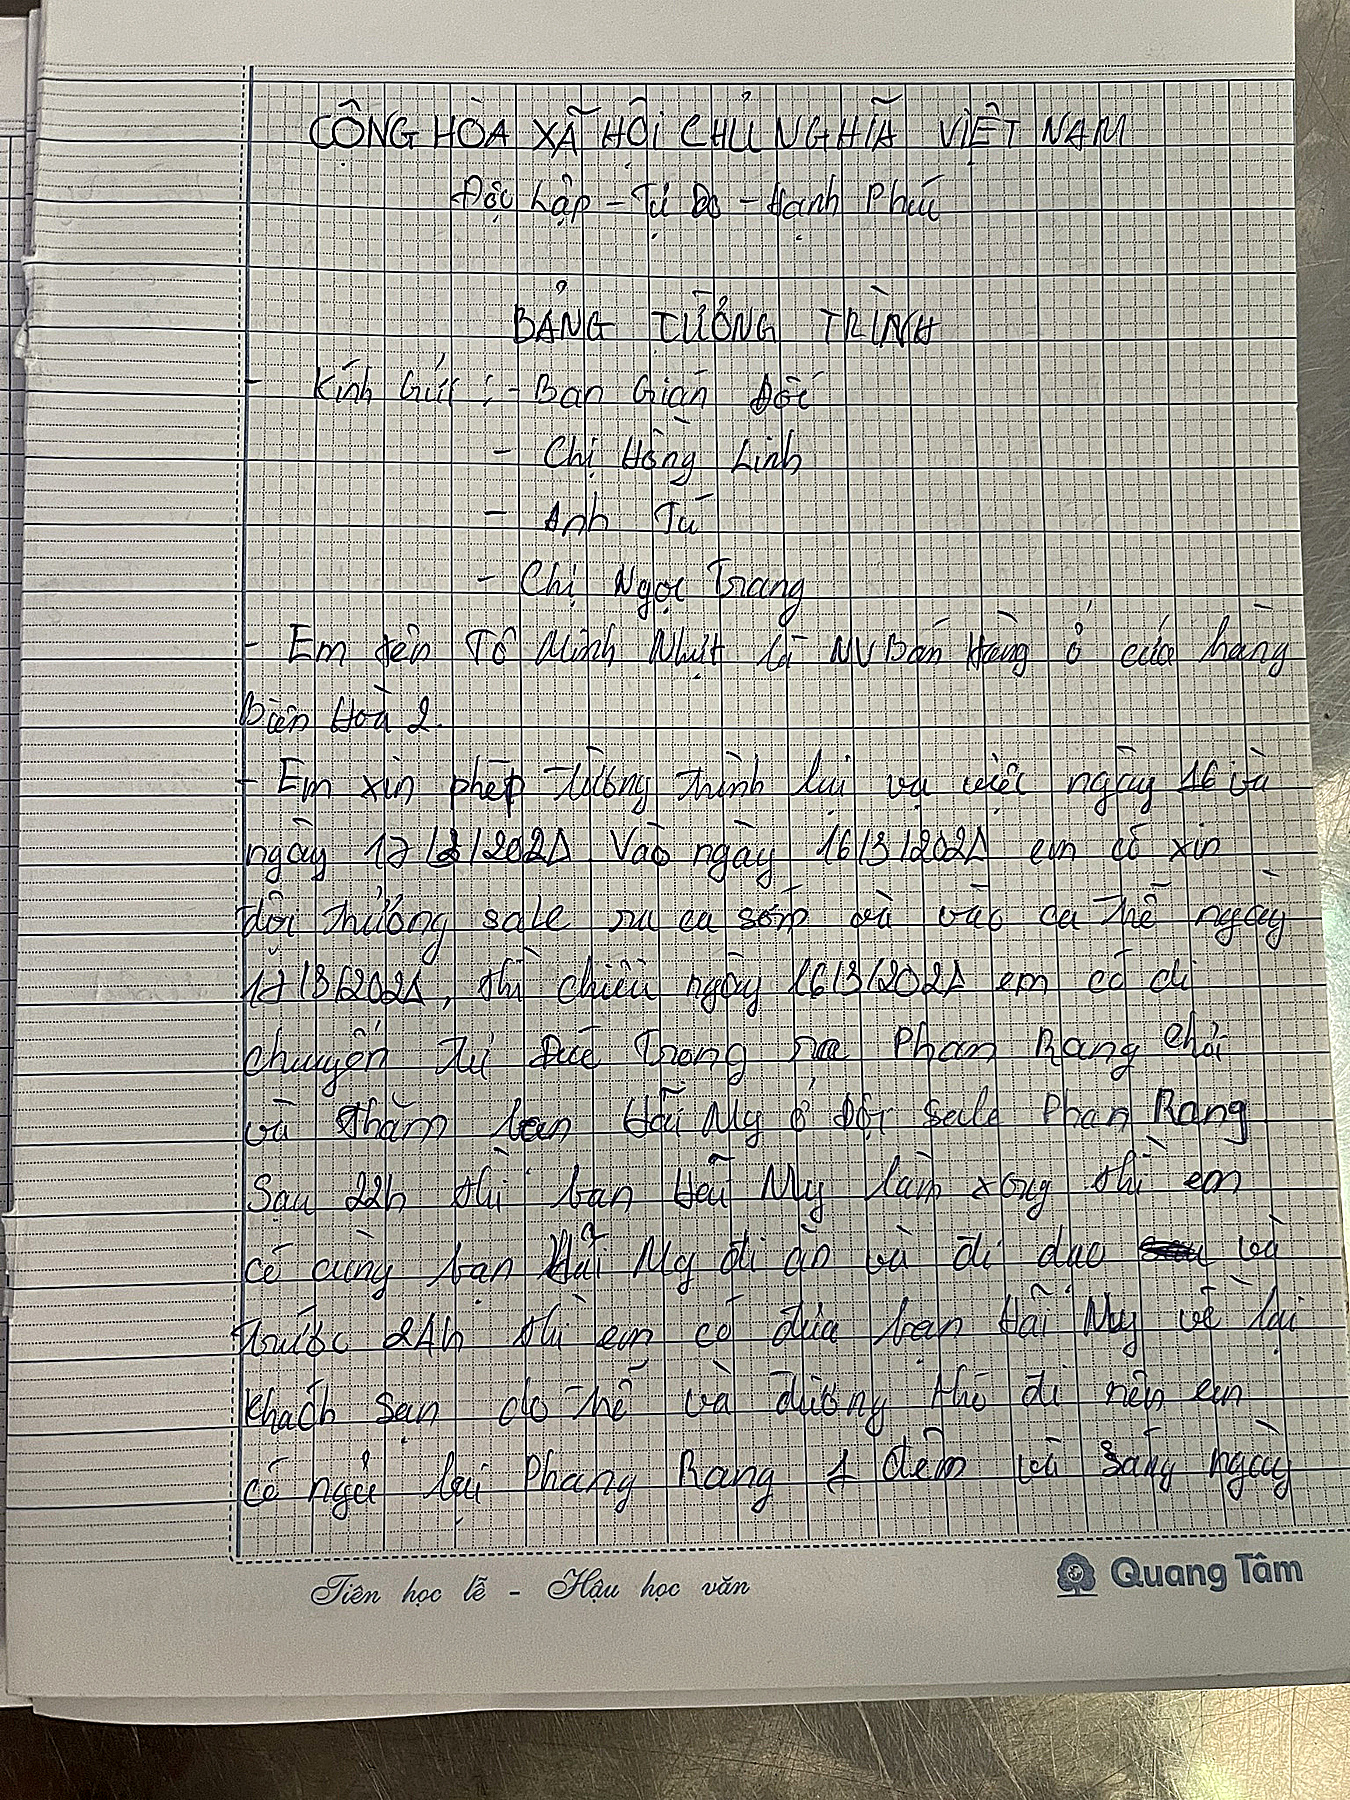 CỘNG HÒA XÃ HỘI CHỦ NGHĨA VIỆT NAM
Độc Lập - Tự Do - Hạnh Phúc
BẢNG TƯỜNG TRÌNH
- Kính Gửi : - Ban Gián Đốc
- Chị Hồng Linh
- Anh Tú
- Chị Ngọc Trang
- Em tên Tô Minh Nhựt là NV Bán Hàng ở cửa hàng
Biên Hoà 2.
- Em xin phép tường trình lại vụ việc ngày 16 và
ngày 17/3/2021 Vào ngày 16/3/2021 em có xin
đội trưởng sale ra ca sớm và vào ca trễ ngày
17/3/2021, thì chiều ngày 16/3/2021 em có di
chuyển từ Đức Trọng ra Phan Rang chơi
và thăm bạn Hải My ở Đội Sale Phan Rang
Sau 22h thì bạn Hải My làm xong thì em
có cùng bạn Hải My đi ăn và đi dạo và
trước 24h thì em có đưa bạn Hải My về lại
khách sạn do trễ và đường khó đi nên em
có ngủ lại Phang Rang 1 đêm và sáng ngày
Tiên học lễ - Hậu học văn
Quang Tâm